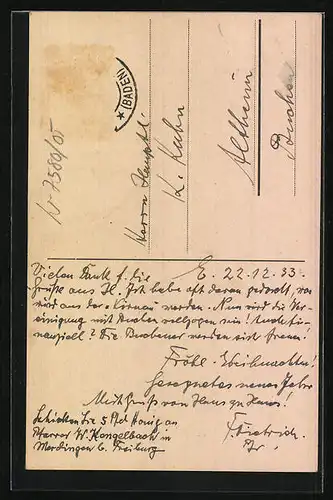 (BADEN)
Herrn Hauptl.
K. Kuhn
Altheim
Buchen
E. 22.12.33.
Vielen Dank f. die
Grüße aus H. Ich habe oft daran gedacht, was
wird aus der werden. Nun wird die Ver-
einigung mit Buchen vollzogen sein! Auch fi-
nanziell? Die Buchener werden sich freuen!
Fröhl. Weihnachten!
Gesegnetes neues Jahr
Mit Gruß von Haus zu Haus!
Dietrich
Schicken Sie 5 Pfd Honig an
Pfarrer W. Kengelbach in
Merdingen b. Freiburg